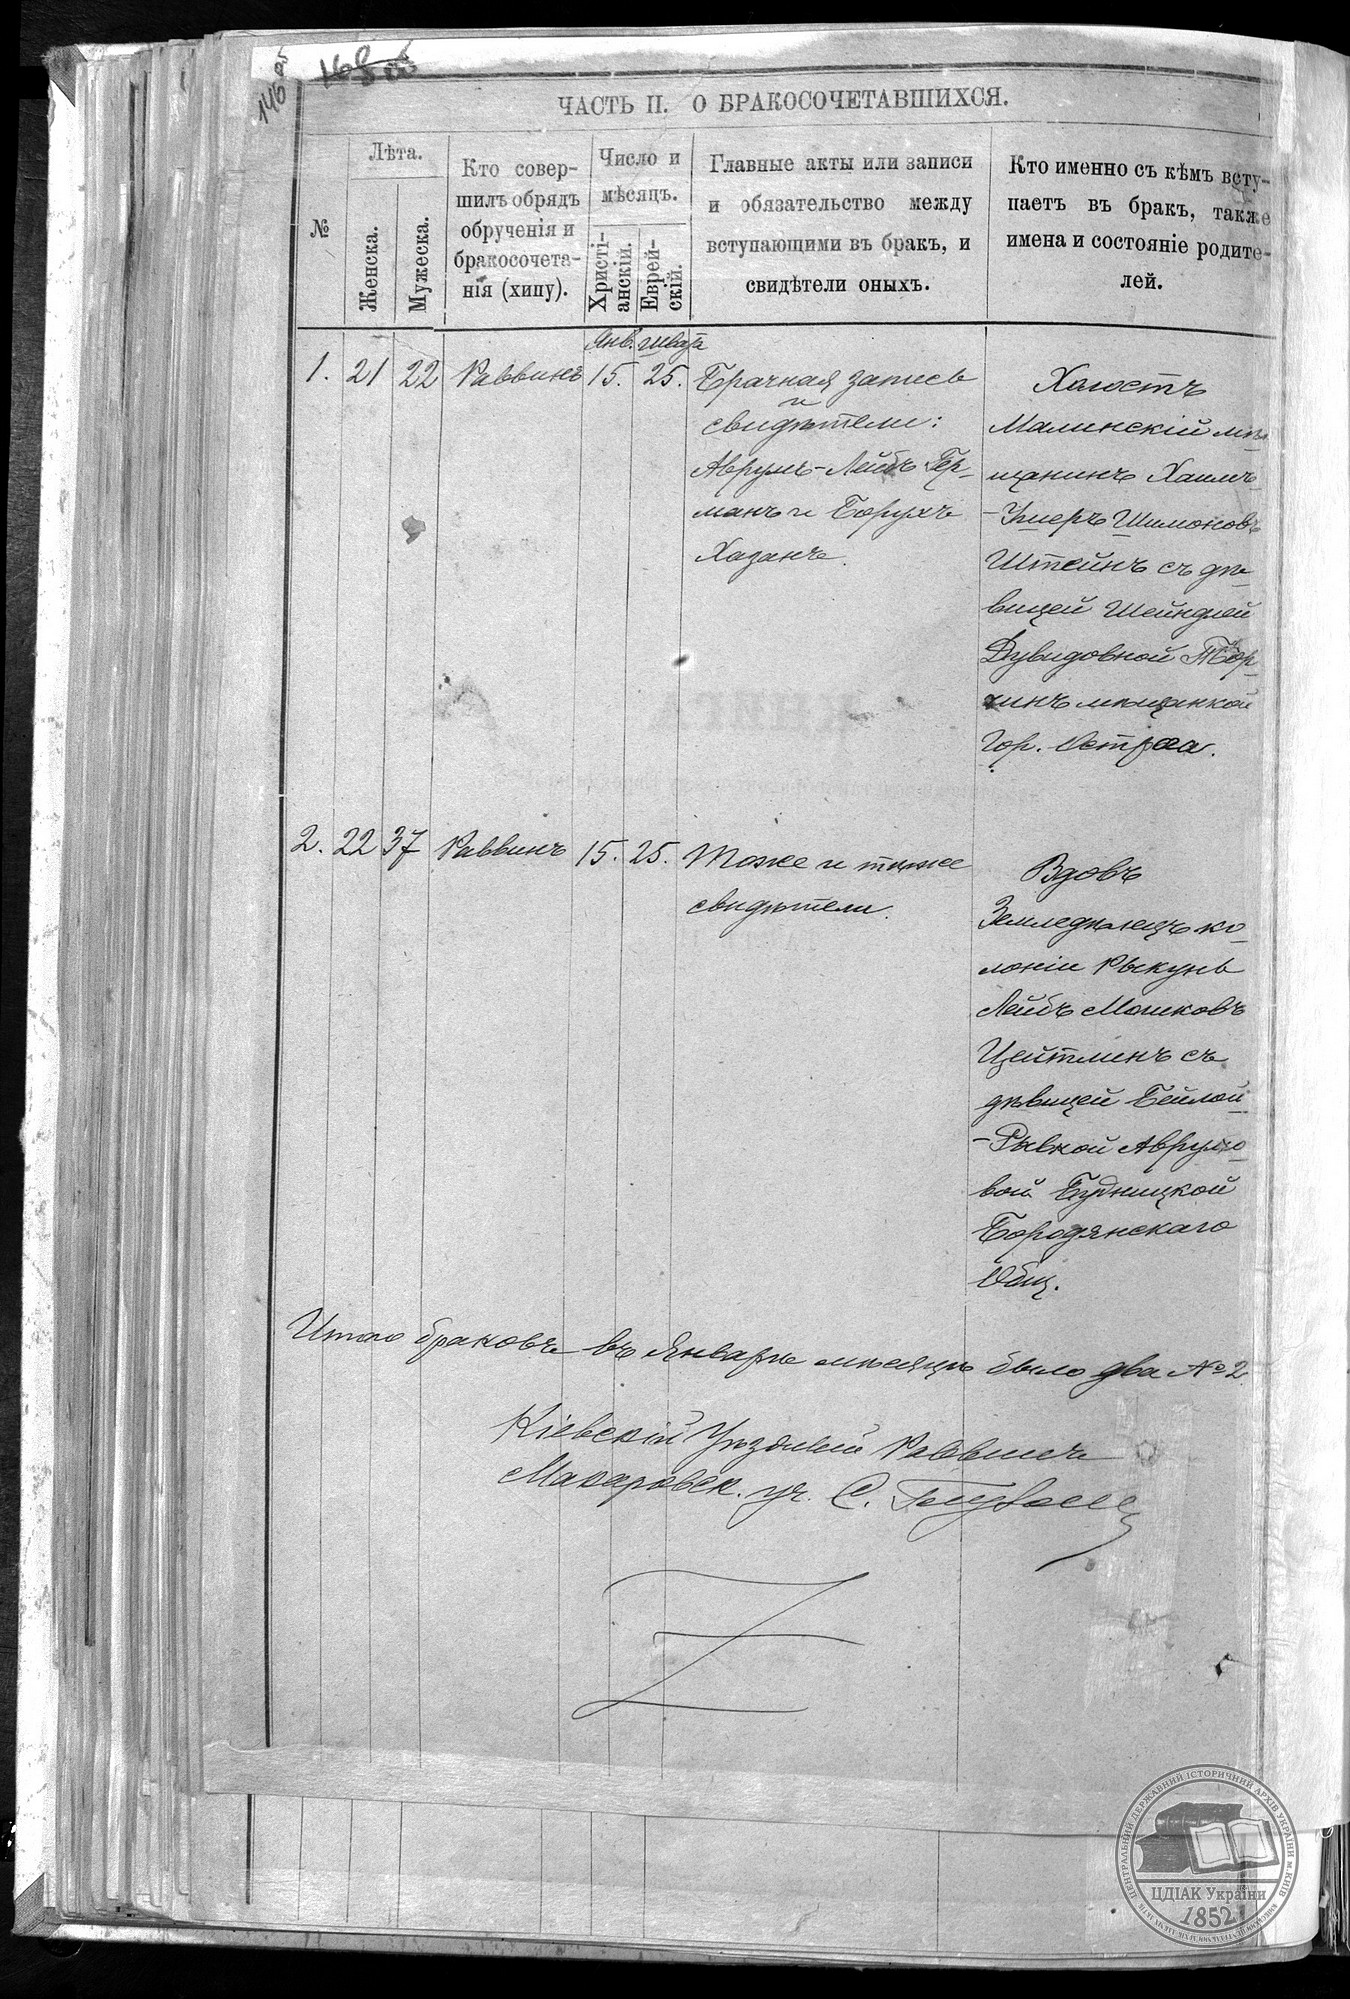 146 об
168 об
ЧАСТЬ II. О БРАКОСОЧЕТАВШИХСЯ.
№
Лѣта.
Женска.
Мужеска.
Кто совер-
шилъ обрядъ
обрученія и
бракосочета-
нія (хипу).
Число и
мѣсяцъ.
Христі-
анскій.
Еврей-
скій.
Главные акты или записи
и обязательство между
вступающими въ бракъ, и
свидѣтели оныхъ.
Кто именно съ кѣмъ всту-
паетъ въ бракъ, также
имена и состояніе родите-
лей.
Янв. шват
1. 21 22 Раввинъ 15. 25.
Брачная запись
и
свидѣтели:
Аврумъ-Лейбъ Гер-
манъ и Борухъ
Хазанъ.
Холостъ
Малинскій мѣ-
щанинъ Хаимъ-
-Умеръ Шимоновъ
Штейнъ съ дѣ-
вицей Шейндлей
Дувидовной
мѣщанкой
Гор. Острога.
2. 22 37 Раввинъ 15. 25.
Тоже и тѣже
свидѣтели.
Вдовъ
Земледѣлецъ ко-
лоніи Рыкунь
Лейбъ Мошковъ
Цейтлинъ съ
дѣвицей Бейлой-
-Ривкой Аврумо-
вой Будницкой
Бородянскаго
Общ.
Итого браковъ въ Январѣ мѣсяцѣ было два № 2.
Кіевскій Уѣздный Раввинъ
Макаровск. уч. С.
ЦЕНТРАЛЬНИЙ ДЕРЖАВНИЙ ІСТОРИЧНИЙ АРХІВ УКРАЇНИ м. КИЇВ
ЦДІАК України
1852